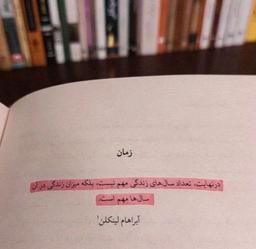 زمان
درنهایت، تعداد سال‌های زندگی مهم نیست، بلکه میزان زندگی در آن
سال‌ها مهم است.
آبراهام لینکلن!